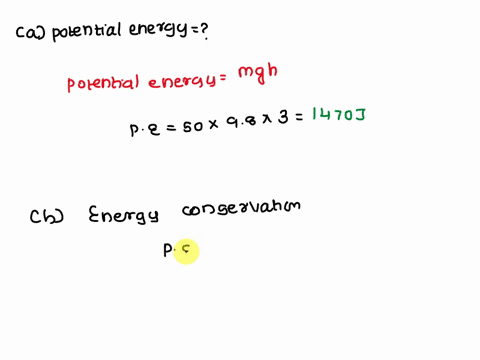 (a) potential energy=?
potential energy= mgh
P.E = 50 × 9.8 × 3 = 1470J
(b) Energy conservation
P.E